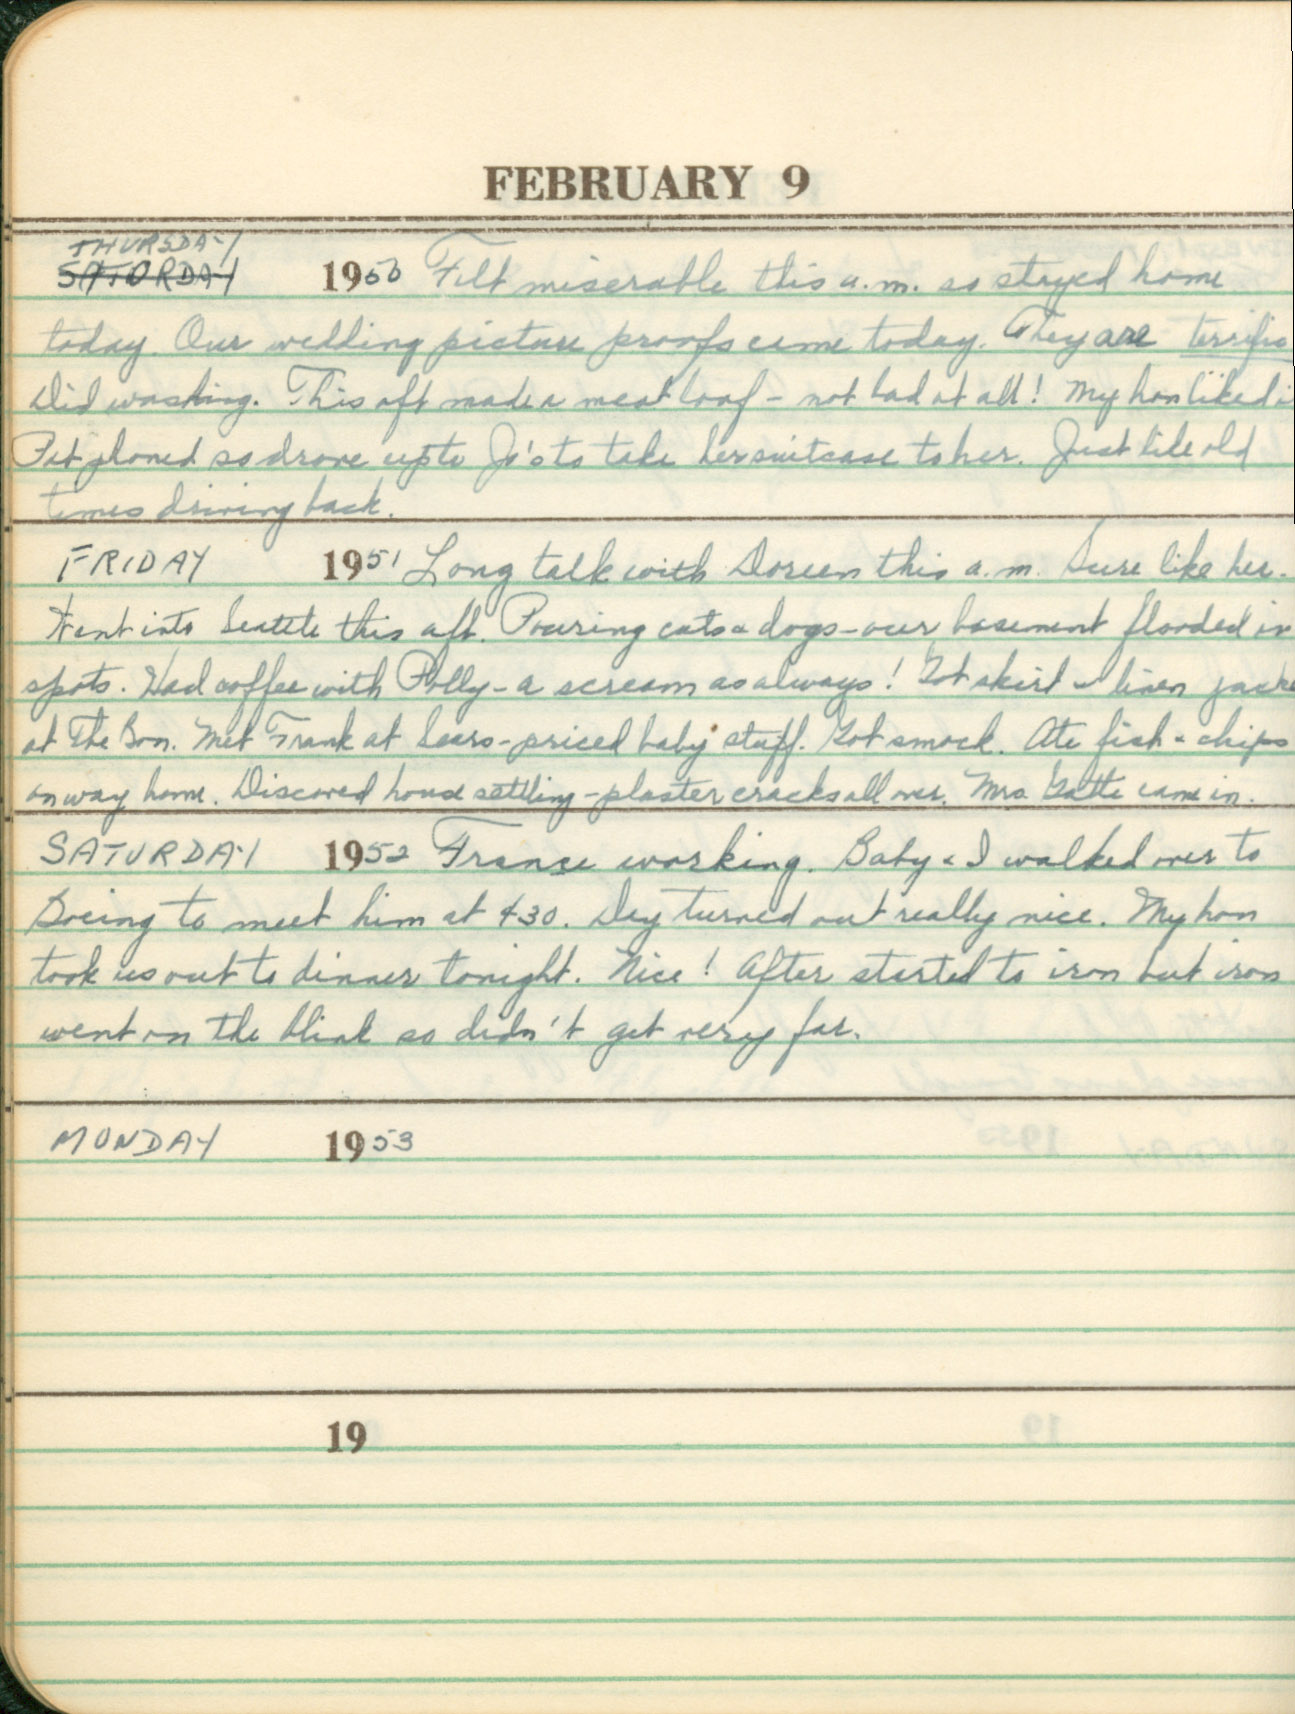 FEBRUARY 9
THURSDAY
SATURDAY 1950 Felt miserable this a.m. so stayed home
today. Our wedding picture proofs came today. They are terrific
Did washing. This aft made a meat loaf - not bad at all! My hon liked i
Pat phoned so drove up to Jo's to take her suitcase to her. Just like old
times driving back.
FRIDAY 1951 Long talk with Doreen this a.m. Sure like her.
Went into Seattle this aft. Pouring cats & dogs - our basement flooded in
spots. Had coffee with Polly - a scream as always! Got skirt & linen jacke
at The Bon. Met Frank at Sears - priced baby stuff. Got smock. Ate fish & chips
on way home. Discovered house settling - plaster cracks all over. Mrs. came in.
SATURDAY 1952 working. Baby & I walked over to
Boeing to meet him at 4:30. Day turned out really nice. My hon
took us out to dinner tonight. Nice! After started to iron but iron
went on the blink so didn't get very far.
MONDAY 1953
19